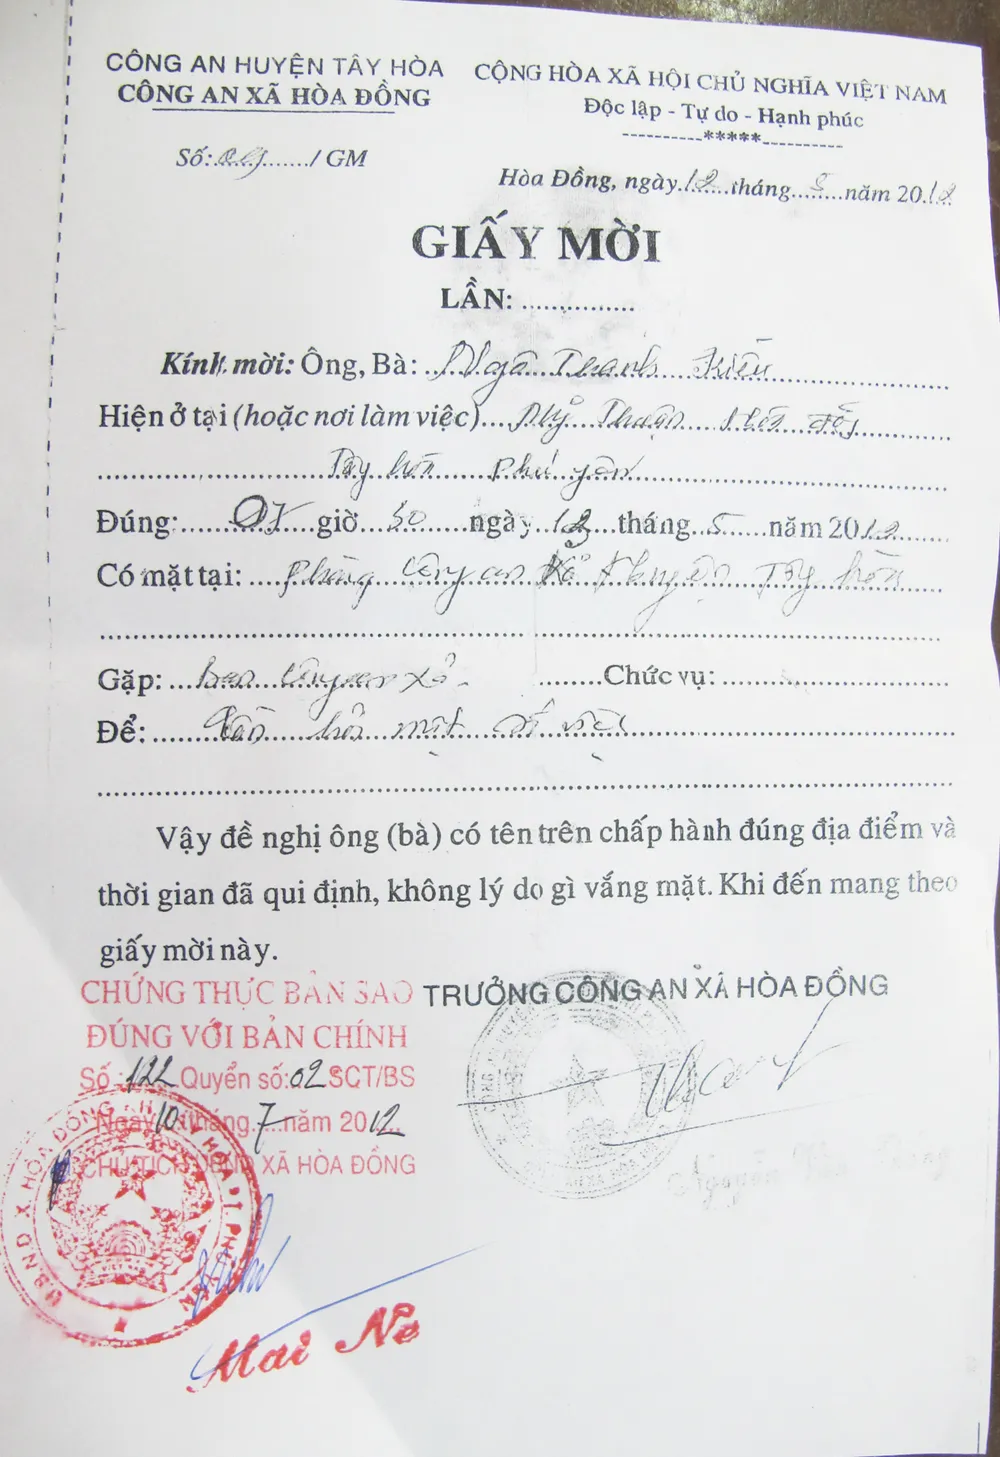 CÔNG AN HUYỆN TÂY HÒA
CÔNG AN XÃ HÒA ĐỒNG
CỘNG HÒA XÃ HỘI CHỦ NGHĨA VIỆT NAM
Độc lập - Tự do - Hạnh phúc
----------*****----------
Số:............/ GM
Hòa Đồng, ngày.12...tháng...5...năm 2012
GIẤY MỜI
LẦN: ...............
Kính mời: Ông, Bà: Ngô Thanh Kiều
Hiện ở tại (hoặc nơi làm việc)...Mỹ Thuận
Tây hòa Phú yên
Đúng:......07 giờ 30 ngày 13 tháng 5 năm 2012
Có mặt tại: ....phòng Công an Huyện Tây hòa
Gặp: ...ban Công an xã ........Chức vụ: ..............................
Để: .......... một số việc
Vậy đề nghị ông (bà) có tên trên chấp hành đúng địa điểm và
thời gian đã qui định, không lý do gì vắng mặt. Khi đến mang theo
giấy mời này.
CHỨNG THỰC BẢN SAO
ĐÚNG VỚI BẢN CHÍNH
Số :122 Quyển số:02 SCT/BS
Ngày 10 tháng 7 năm 2012
CHỦ TỊCH UBND XÃ HÒA ĐỒNG
TRƯỞNG CÔNG AN XÃ HÒA ĐỒNG
U.B.N.D X. HÒA ĐỒNG H. TÂY HÒA T. PHÚ YÊN
Nguyễn
Mai Ne